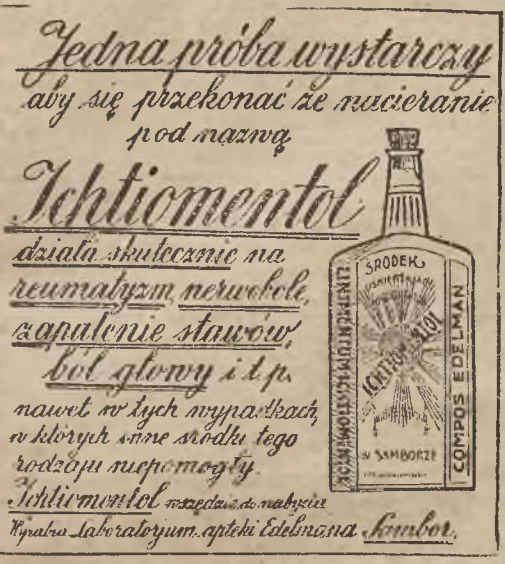 Jedna próba wystarczy
aby się przekonać że nacieranie
pod nazwą
Ichtiomentol
działa skutecznie na
reumatyzm, nerwobole,
zapalenie stawów,
ból głowy i t.p.
nawet w tych wypadkach,
w których inne środki tego
rodzaju niepomogły.
Ichtiomentol wszędzie do nabycia
Wyrabia Laboratoryum apteki Edelmana Sambor.
ŚRODEK
uśmierzający
ICHTIOMENTOL
W SAMBORZE
LINIMENTUM
COMPOS EDELMAN